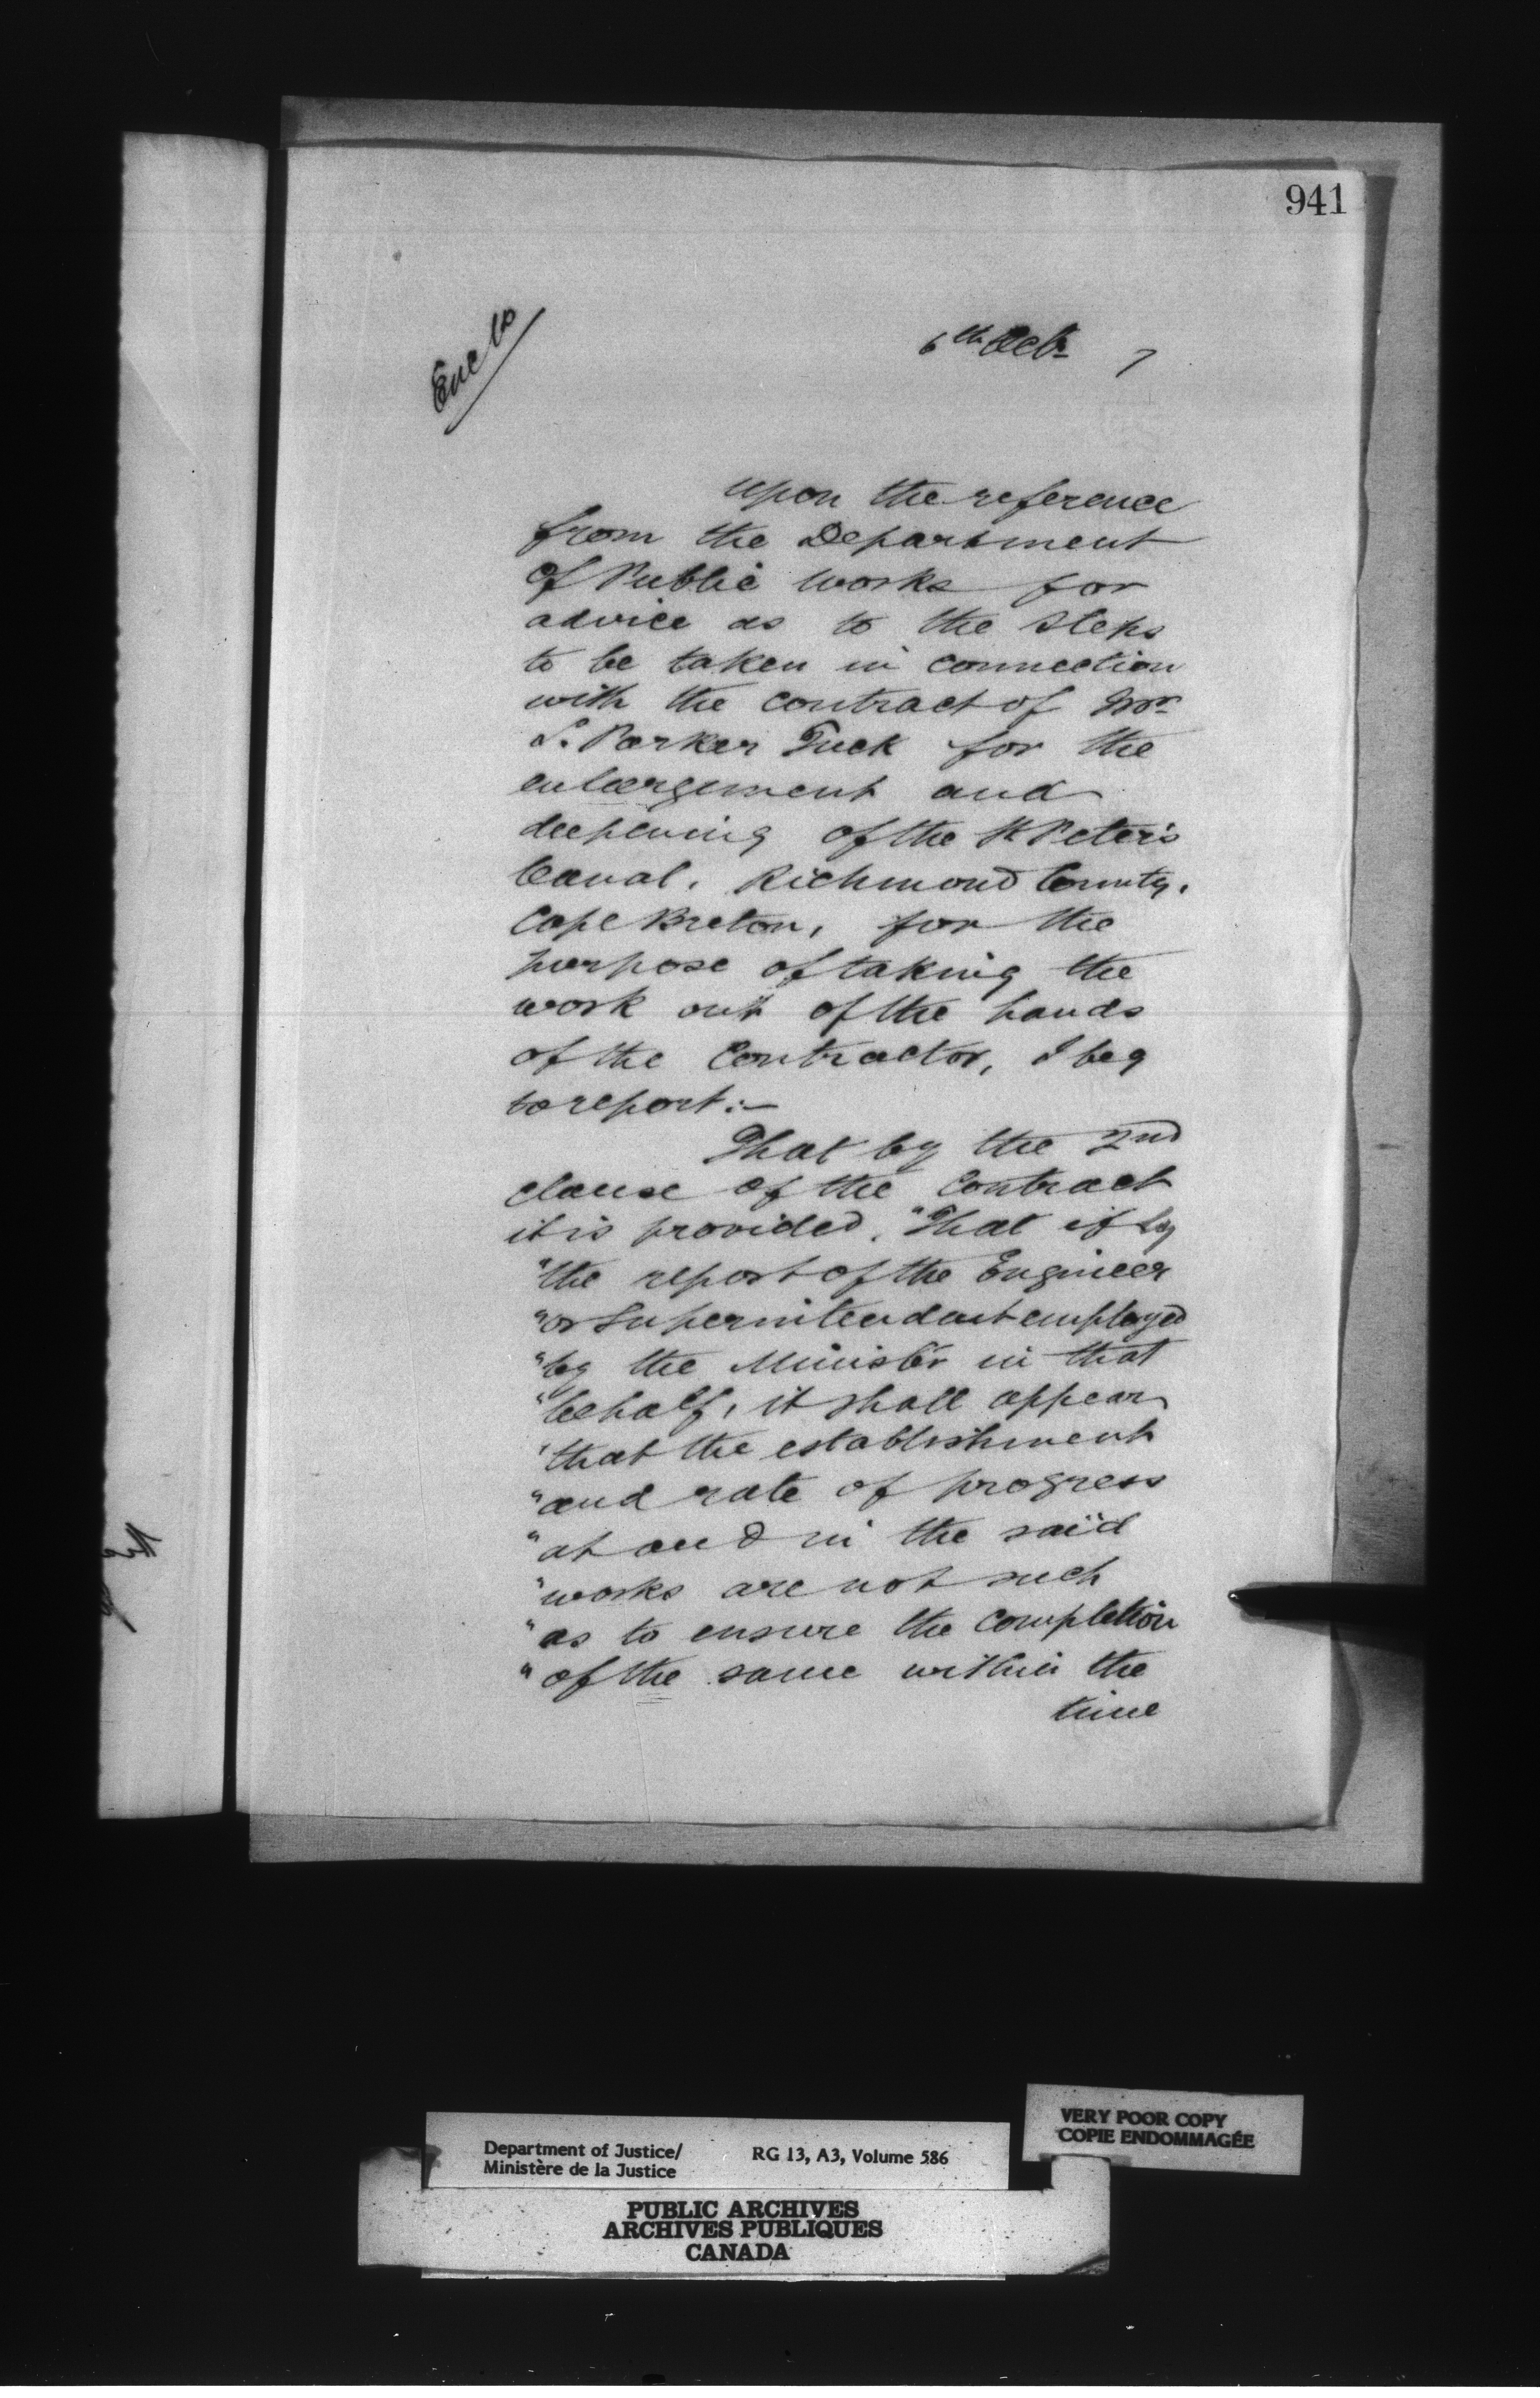 941
Encls
6th Octr 7
upon the reference
from the Department
of Public Works for
advice as to the steps
to be taken in connection
with the contract of Mr
S. Parker Tuck for the
enlargement and
deepening of the St Peter's
Canal, Richmond County,
Cape Breton, for the
purpose of taking the
work out of the hands
of the Contractor, I beg
to report:—
That by the 2nd
clause of the Contract
it is provided, "That if by
"the report of the Engineer
"or Superintendent employed
"by the Minister in that
"behalf, it shall appear
"that the establishment
"and rate of progress
"at and in the said
"works are not such
"as to ensure the completion
"of the same within the
time
VERY POOR COPY
COPIE ENDOMMAGÉE
Department of Justice/ RG 13, A3, Volume 586
Ministère de la Justice
PUBLIC ARCHIVES
ARCHIVES PUBLIQUES
CANADA